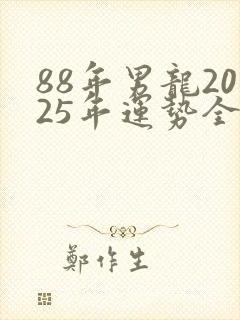 88年男龍20
25年運勢全
鄭作生